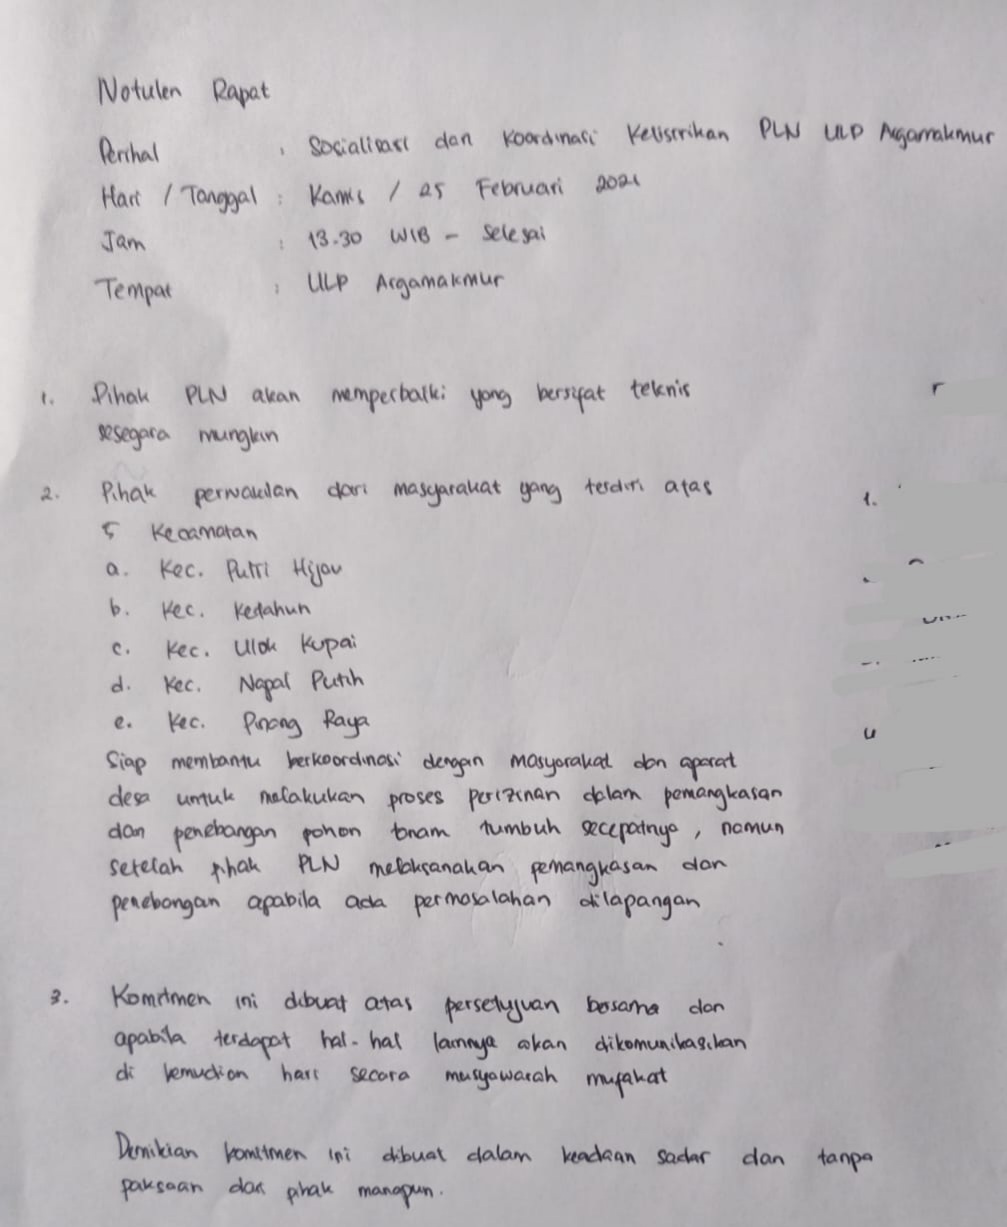 Notulen Rapat
Perihal : Socialisasi dan Koordinasi Kelistrikan PLN ULP Argamakmur
Hari / Tanggal : Kamis / 25 Februari 2021
Jam : 13.30 WIB - Selesai
Tempat : ULP Argamakmur
1. Pihak PLN akan memperbaiki yang bersifat teknis
sesegara mungkin
2. Pihak perwakilan dari masyarakat yang terdiri atas
5 Kecamatan
a. Kec. Putri Hijau
b. Kec. Ketahun
c. Kec. Ulok Kupai
d. Kec. Napal Putih
e. Kec. Pinang Raya
Siap membantu berkoordinasi dengan masyarakat dan aparat
desa untuk melakukan proses perizinan dalam pemangkasan
dan penebangan pohon tanam tumbuh secepatnya, namun
setelah pihak PLN melaksanakan pemangkasan dan
penebangan apabila ada permasalahan dilapangan
3. Komitmen ini dibuat atas persetujuan bersama dan
apabila terdapat hal-hal lainnya akan dikomunikasikan
di kemudian hari secara musyawarah mufakat
Demikian komitmen ini dibuat dalam keadaan sadar dan tanpa
paksaan dari pihak manapun.
1.